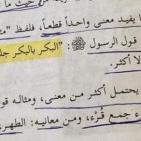 ما يفيد معنى واحداً قطعاً، فلفظ "مئـ
قول الرسول ﷺ: "البكر بالبكر جلـ
لا أكثر.
يحتمل أكثر من معنى، ومثاله قو
ء جمع قُرْء، ومن معانيه: الطهر،